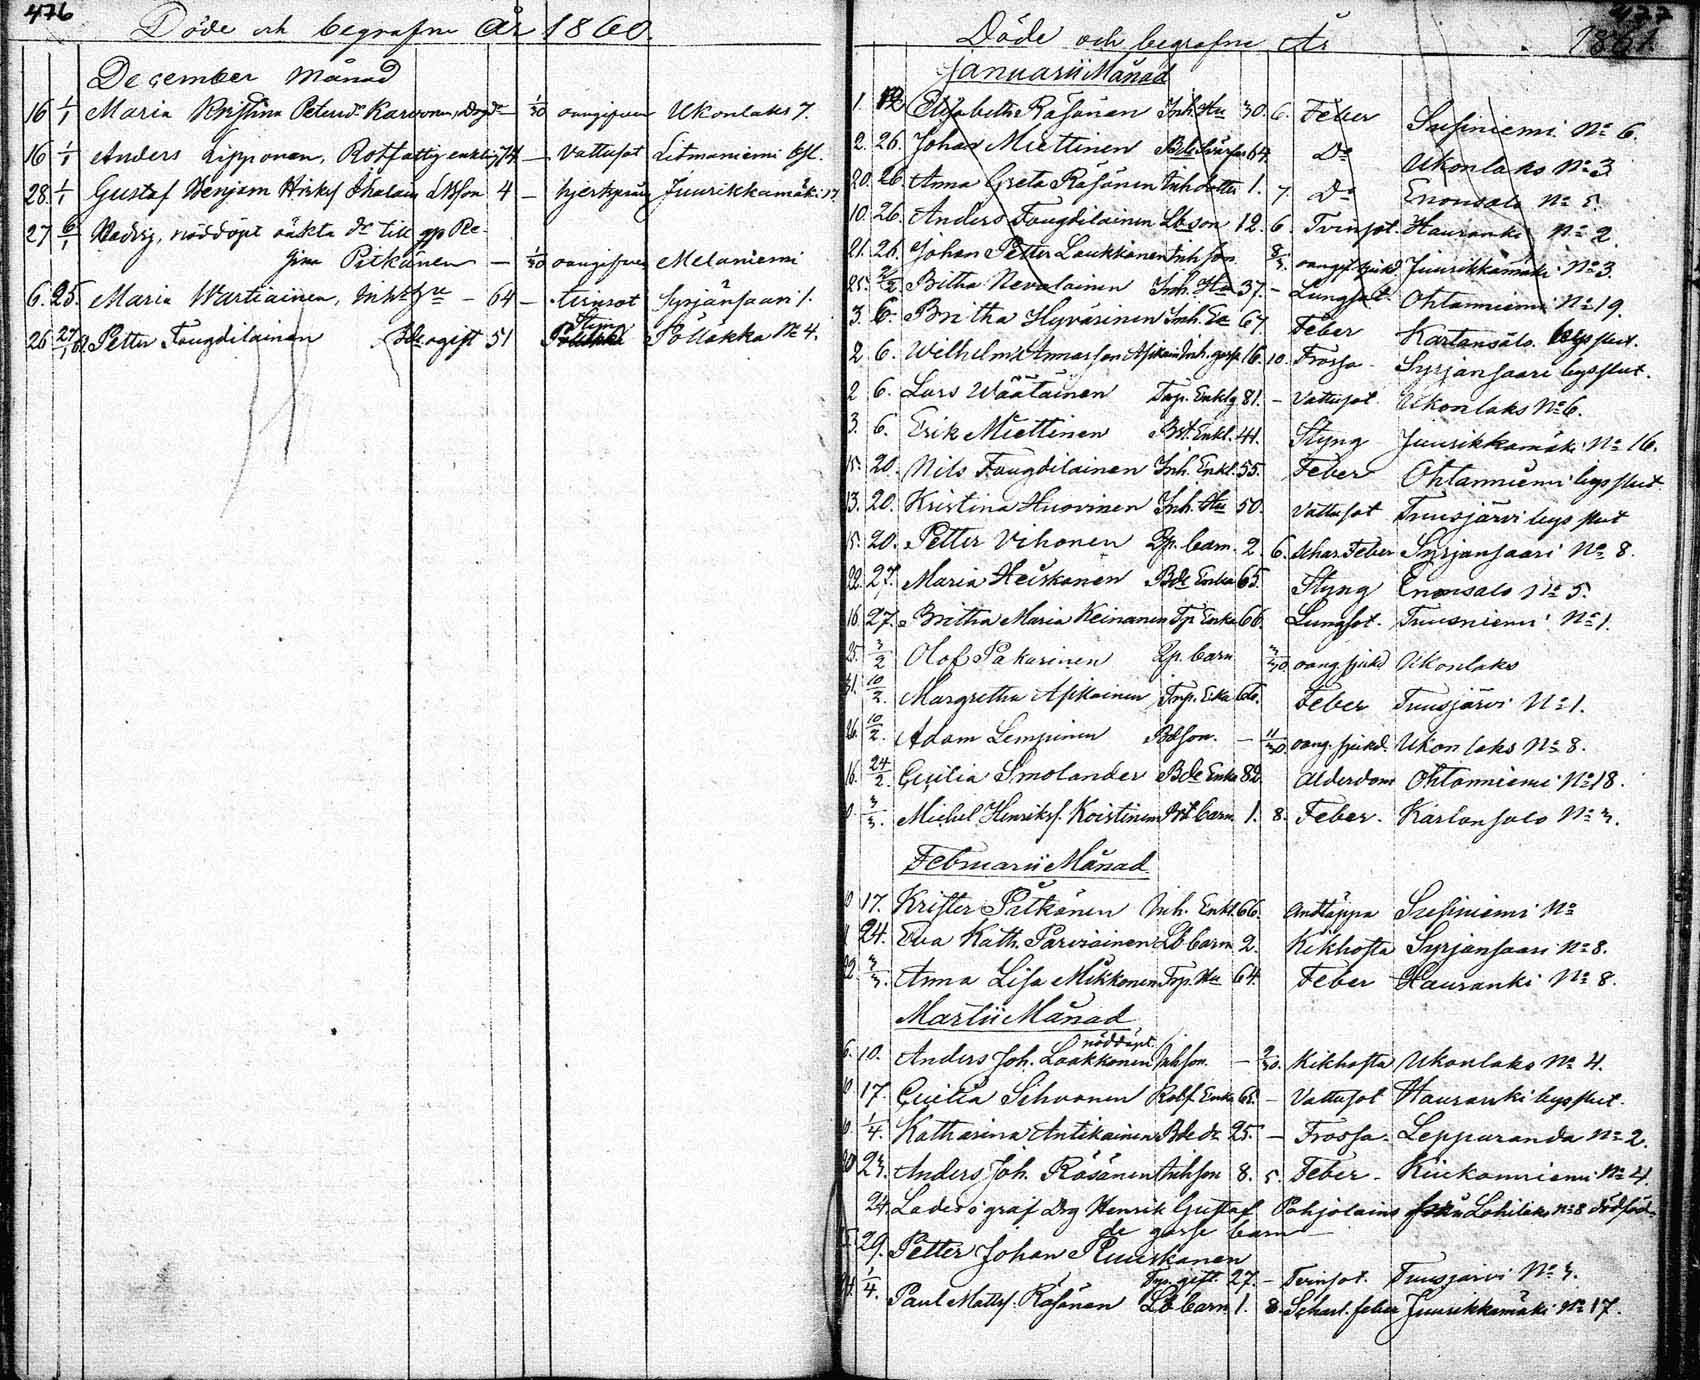 476
Döde och begrafne År 1860.
December Månad
16 1/1 Maria Kristina Petersdr Karvonen, 1/30 oangifven Ukonlaks 7.
16 1/1 Anders Lipponen, Rotfattig enkling 74 — Vattusot Litmaniemi
28. 1/1 Gustaf Benjam 4 — Juurikkamäki 17
27 6/1 Hedvig, nöddöpt oäkta dr till pp Re-
gina Pitkänen — 1/30 oangifven Melaniemi
6. 25. Maria Wartiainen, Inhs hu — 64 — tvinsot Syrjänsaari 1.
26 27/1 Petter Fougdilainen ogift 51 Styng Pöllakka No 4.
477
Döde och begrafne År 1861.
Januarii Månad
1. Elisabeth Räsänen Inh. Hu 30. 6. Feber Susiniemi No 6.
2. 26. Johan Miettinen 64. Do Ukonlaks No 3
20. 26. Anna Greta Räsänen Inh dotter 1. 7. Do Enonsalo No 5.
10. 26. Anders Fougdilainen Lb son 12. 6. Tvinsot Hauranki No 2.
21. 26. Johan Petter Laukkanen Inh son oangif. sjukd. Juurikkamäki No 3.
25. 2/2 Britha Nevalainen Inh. Hu 37. — Lungsot. Ohtanniemi No 19.
3. 6. Britha Hyvärinen Inh. Ea 67. Feber Kartansalo byslut.
2 6. Wilhelm Annasson Asikain Inh. gosse 16. 10. Frossa Syrjänsaari byslut.
2 6. Lars Wäätäinen Torp. Enklg 81. — Vattusot Ukonlaks No 6.
3. 6. Erik Miettinen Bst. Enkl. 44. Styng Juurikkamäki No 16.
15. 20. Nils Fougdilainen Inh. Enkl. 55. Feber Ohtanniemi byslut
13. 20. Kristina Huovinen Inh. Hu 50. Vattusot Tuusjärvi byslut
15. 20. Petter Vihonen barn. 2. 6. Schar. Feber Syrjänsaari No 8.
22. 27. Maria Heiskanen Bde Enka 65. Styng Enonsalo No 5.
16. 27. Britha Maria Keinänen Tp Enka 66. Lungsot. Tuusniemi No 1.
25. 3/2 Olof Pakarinen barn 3/30 oang. sjukd Ukonlaks
31. 10/2. Margretha Asikainen Torp. Eka 60. Feber Tuusjärvi No 1.
26. 10/2. Adam Lempinen Bdson. — 11/30 oang. sjukd. Ukonlaks No 8.
16. 24/2 Cecilia Smolander Bde Enka 82 Ålderdom Ohtanniemi No 18.
3/3. Michel Henriks. Koistinen Bst barn 1. 8. Feber. Kartansalo No 3.
Februarii Månad
17. Krister Pitkänen Inh. Enkl. 66. Andtäppa Susiniemi No
24. Eva Kath. Parviainen Lb barn 2. Kikhosta Syrjänsaari No 8.
22 3/3. Anna Lisa Mikkonen Torp. Hu 64. Feber Hauranki No 8.
Martii Månad
nöddöpt.
6. 10. Anders Joh. Laakkonen Inhson. — 9/30. Kikhosta Ukonlaks No 4.
17. Cecilia Sihvonen Rotf. Enka 62. — Vattusot Hauranki byslut.
1/4. Katharina Antikainen Bde dr 25. — Frossa. Leppäranda No 2.
20 23. Anders Joh. Räsänen Inhson 8. 5. Feber — Kiukonniemi No 4.
24. Lades i graf Drg Henrik Gustaf Pohjolains från Lohilaks No 8 dödföd-
de gosse barn
29. Petter Johan Ruuskanen
Torp. gift. 27. — Tvinsot. Tuusjärvi No 3.
1/4. Paul Matts. Räsänen Lb barn 1. 8. Scharl. feber Juurikkamäki No 17.